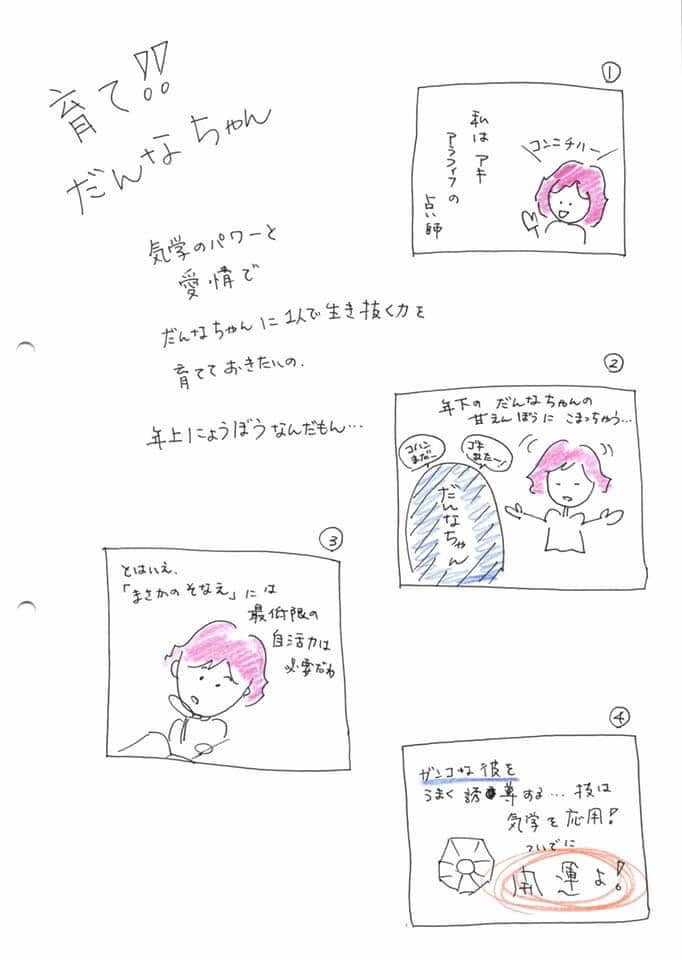 育て!!
だんなちゃん
気学のパワーと
愛情で
だんなちゃんに1人で生き抜く力を
育てておきたいの.
年上にょうぼうなんだもん…
①
私は アキ
アラフィフの
占い師
コンニチハー
②
年下の だんなちゃんの
甘えんぼうに こまっちゃう…
ゴハン
まだー
だんなちゃん
③
とはいえ、
「まさかのそなえ」には
最低限の
自活力は
必要だわ
④
ガンコな 彼を
うまく 誘導する… 技は
気学を応用!
ついでに
開運よ!